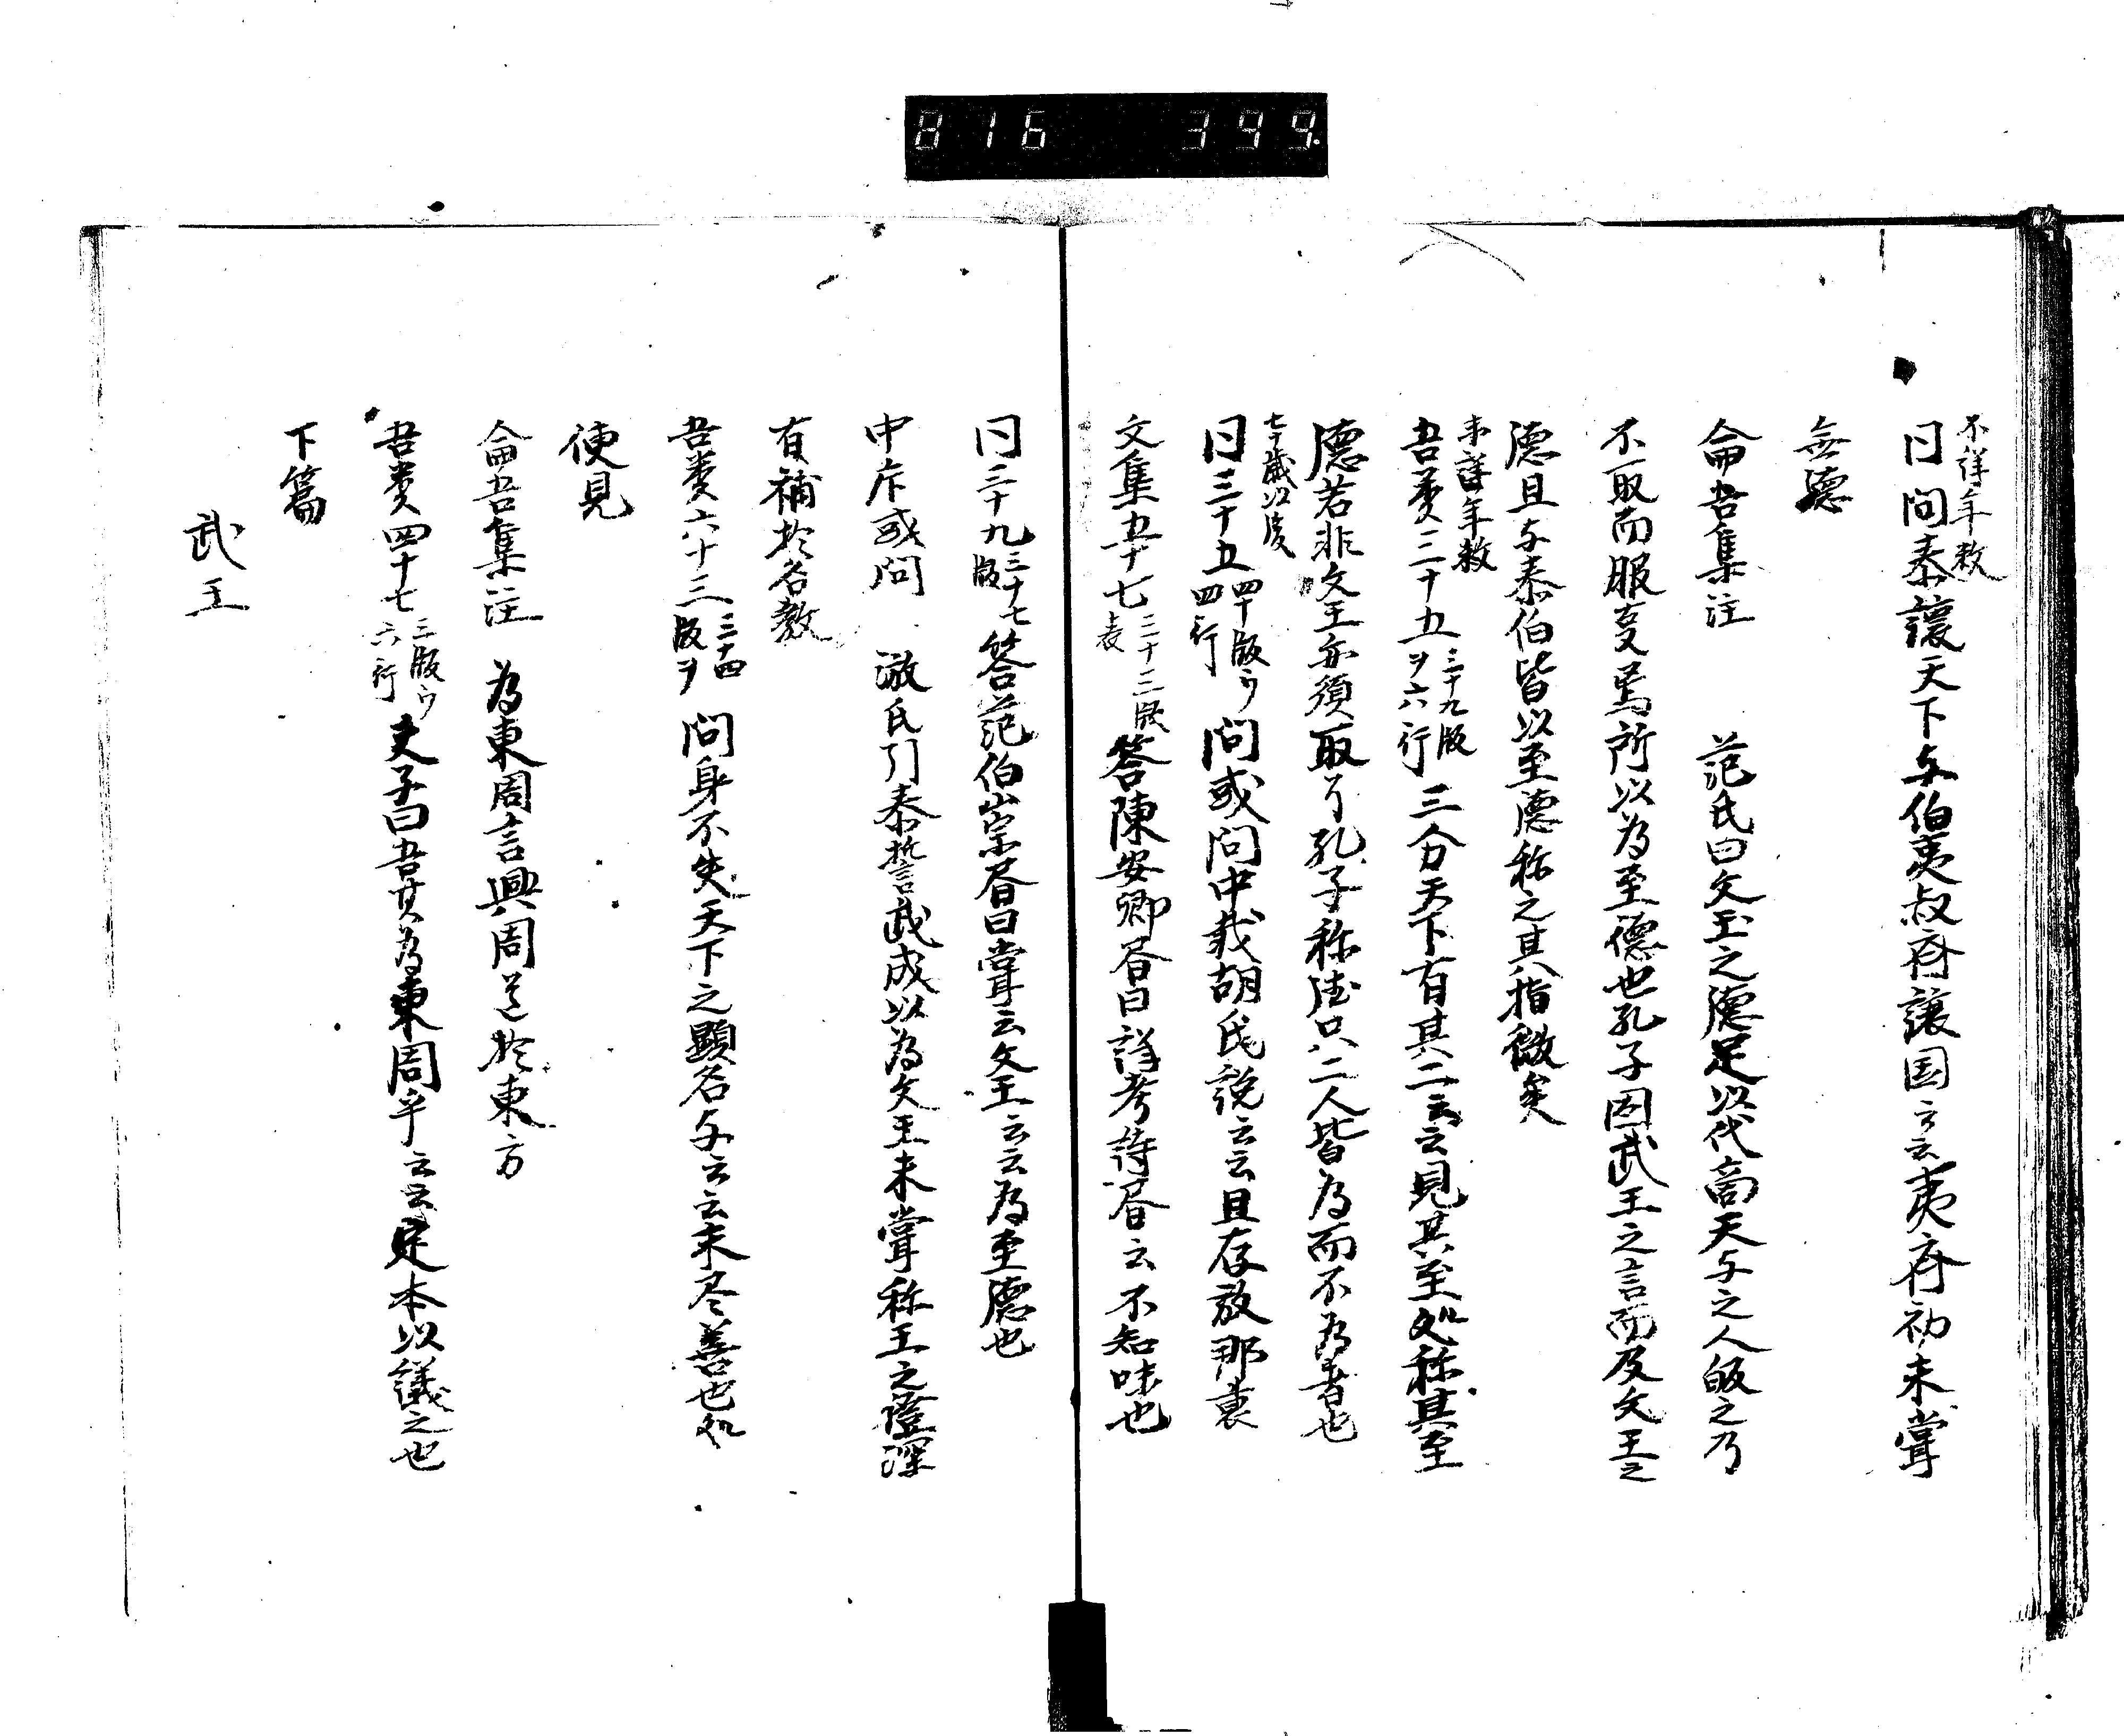 816 399.
不詳年数
同 問泰讓天下与伯夷叔斉讓国云云夷斉初未嘗
無德
侖吾集注 范氏曰文王之德足以代商天与之人皈之乃
不取而服事焉所以為至德也孔子因武王之言而及文王之
德且与泰伯皆以至德称之其指微矣
未詳年数
吾类三十五 三十九版ヲ六行 三分天下有其二云云見其至处称其至
德若非文王亦須取了孔子称德只二人皆為而不為者也
七十歳以後
同三十五 四十版ウ四行 問或問中載胡氏說云云且存放那裏
文集五十七 三十三版表 答陳安卿昏曰詳考詩昏云不知味也
同三十九 三十七版 答范伯崇昏曰嘗云文王云云為至德也
中庸或問 游氏引泰誓武成以為文王未嘗称王之證深
有補於名教
吾类六十三 三十四版ヲ 問身不失天下之顕名与云云未尽善也处
便見
侖吾集注 為東周言興周道於東方
吾类四十七 三版ウ六行 夫子曰吾其為東周乎云云定本以議之也
下篇
武王